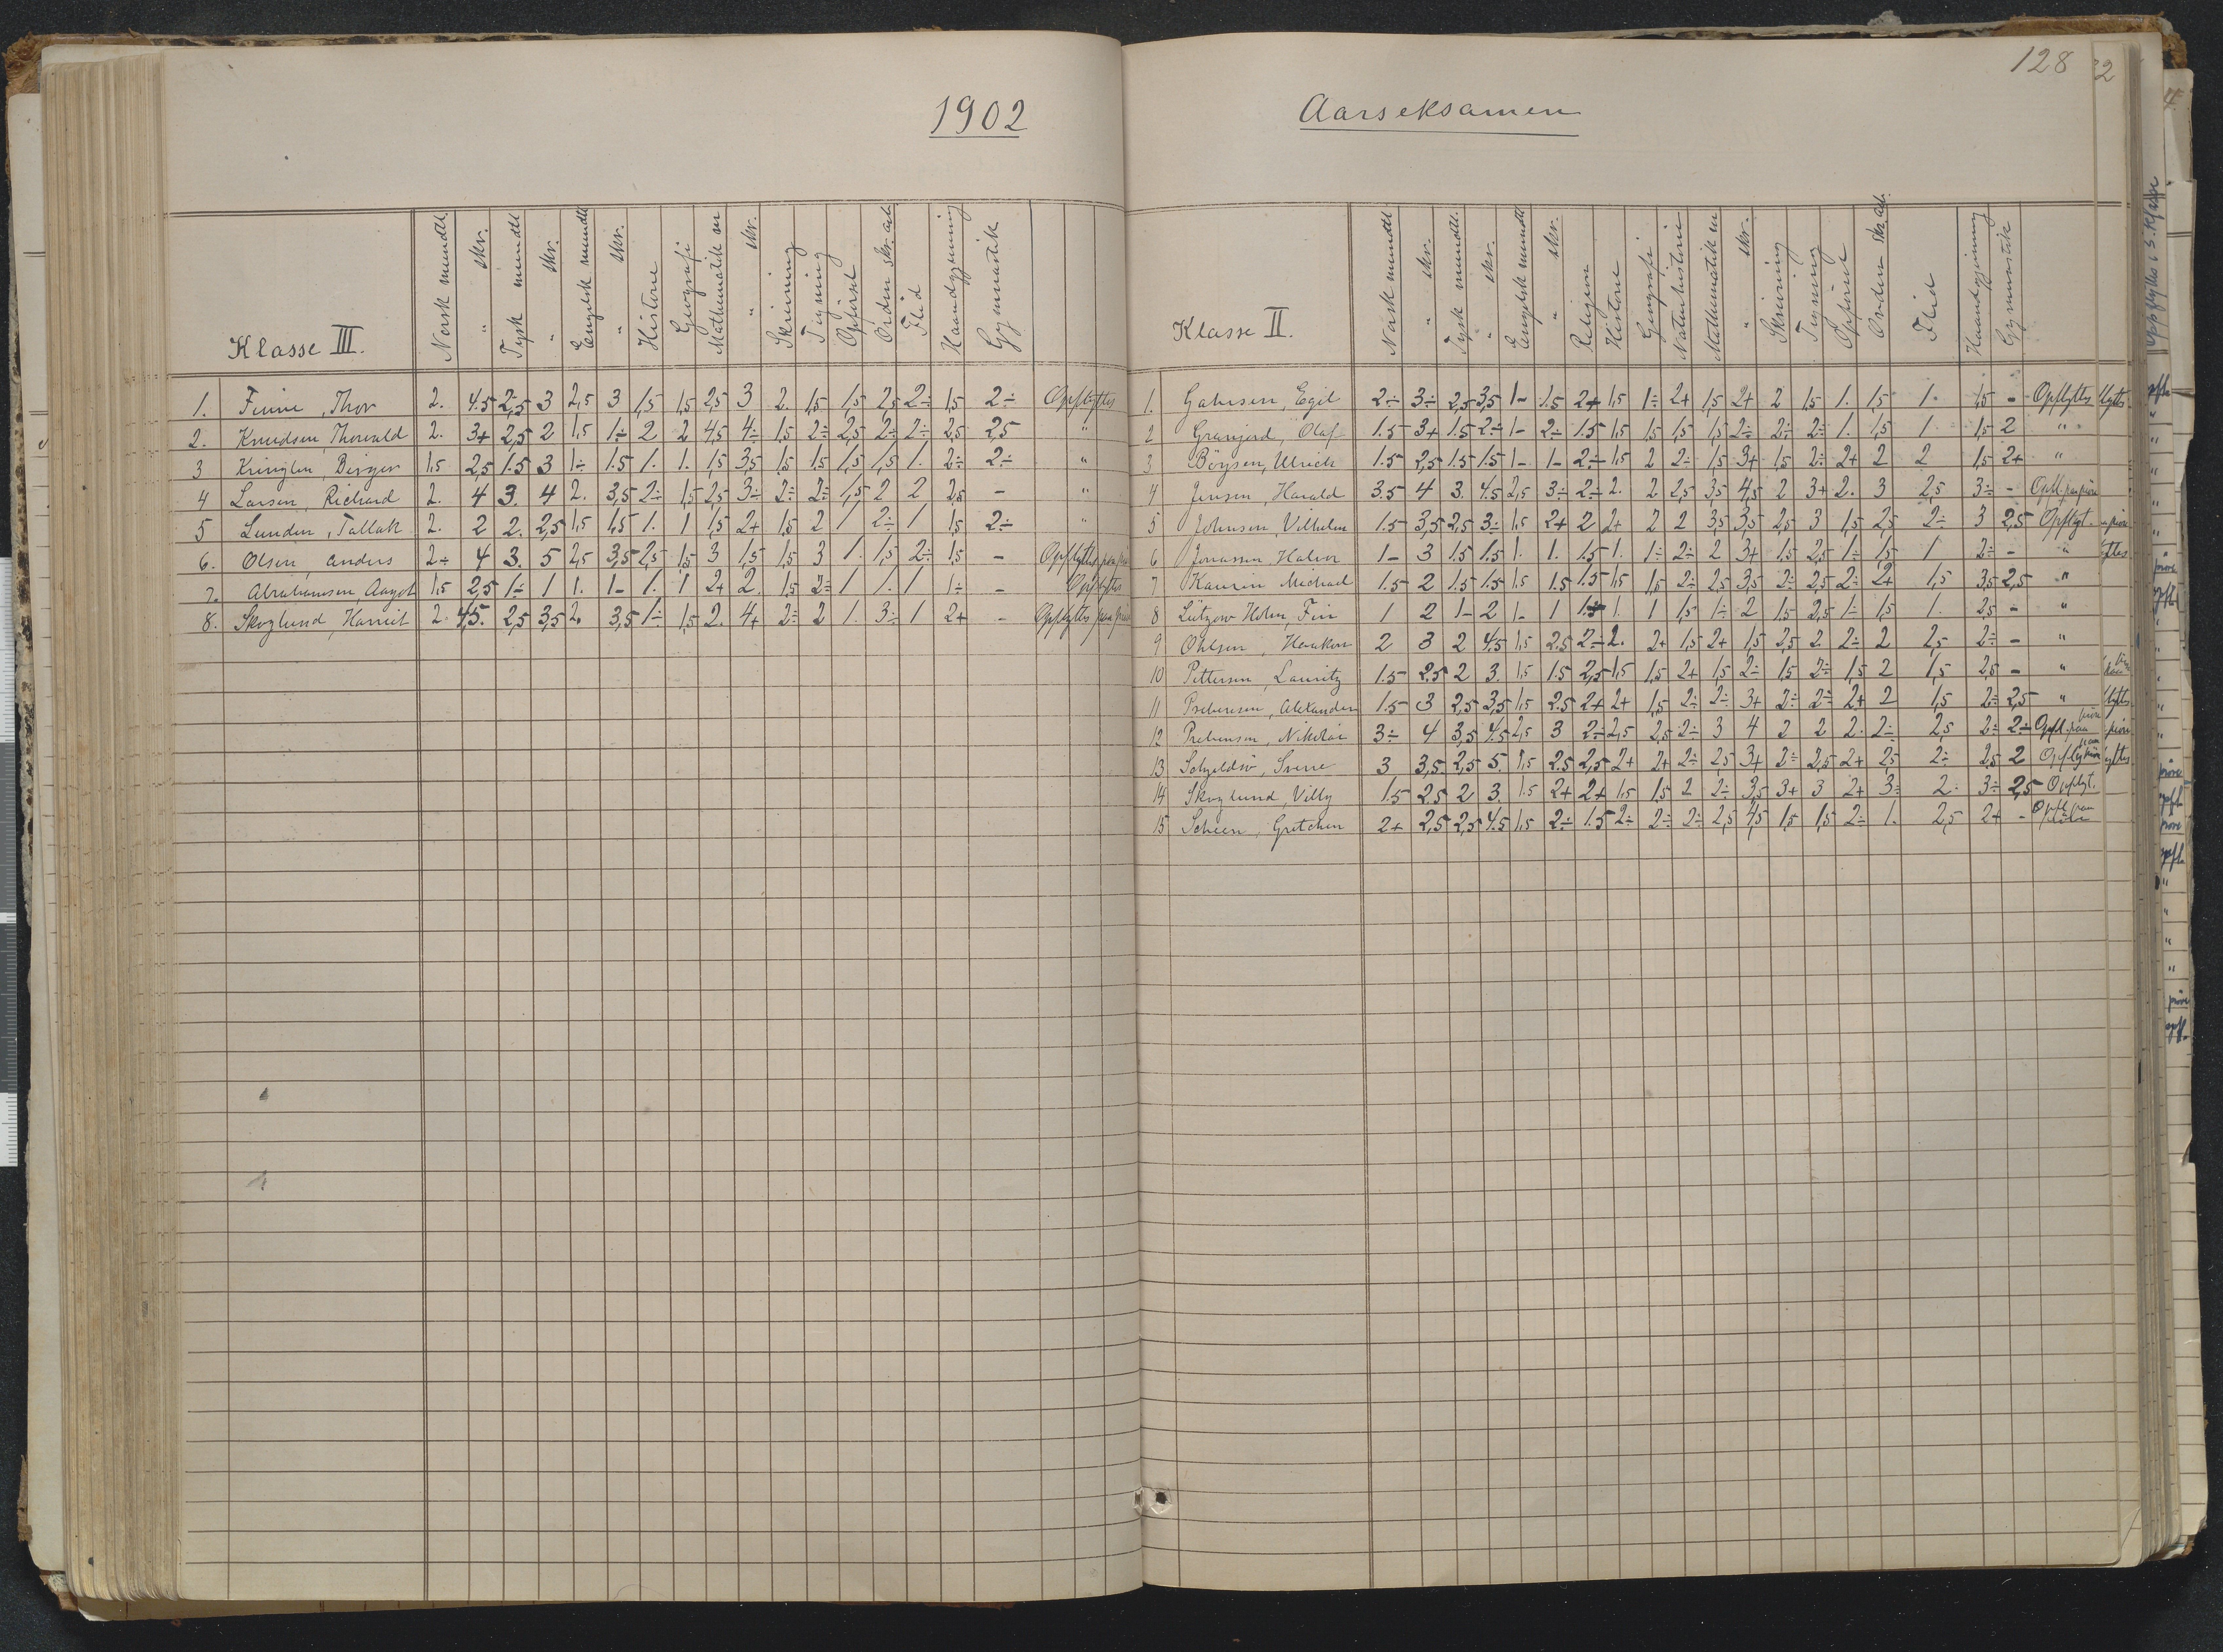 1902
Klasse III. Norsk mundtl. " skr. Tysk mundtl " skr. Engelsk mundtl " skr. Historie Geografi Mathematik m " skr. Skrivning Tegning Opførsel Orden skr. arb. Flid Haandgjerning Gymnastik
1. Finne, Thor 2. 4.5 2,5 3 2,5 3 1,5 1,5 2,5 3 2. 1,5 1,5 2,5 2÷ 1,5 2÷ Opflyttes
2. Knudsen, Thorvald 2. 3+ 2,5 2 1,5 1÷ 2 2 4,5 4÷ 1,5 2÷ 2,5 2÷ 2÷ 2,5 2,5 "
3 Kringlen, Birger 1,5 2,5 1.5 3 1÷ 1.5 1. 1. 1,5 3,5 1,5 1,5 1,5 1,5 1. 2÷ 2÷ "
4 Larsen, Richard 2. 4 3. 4 2. 3,5 2÷ 1,5 2,5 3÷ 2÷ 2÷ 1,5 2 2 2,5 - "
5 Lunden, Tallak 2. 2 2. 2,5 1,5 1,5 1. 1 1,5 2+ 1,5 2 1 2÷ 1 1,5 2÷ "
6. Olsen, Anders 2÷ 4 3. 5 2,5 3,5 2,5 1,5 3 1,5 1,5 3 1. 1,5 2÷ 1,5 - Opflyttes paa
7. Abrahamsen Aagot 1,5 2,5 1÷ 1 1. 1- 1. 1 2+ 2. 1,5 2÷ 1 1. 1 1÷ - Opflyttes
8. Skoglund, Harriet 2. 4,5. 2,5 3,5 2. 3,5 1÷ 1,5 2. 4+ 2÷ 2 1. 3÷ 1 2+ - Opflyttes paa prøve
128
Aarseksamen
Klasse II. Norsk mundtl " skr. Tysk mundtl. " skr. Engelsk mundtl " skr. Religion Historie Geografi Naturhistorie Mathematik m " skr. Skrivning Tegning Opførsel Orden skr. arb. Flid Haandgjerning Gymnastik
1. Egil 2÷ 3÷ 2,5 3,5 1- 1.5 2+ 1,5 1÷ 2+ 1,5 2+ 2 1,5 1. 1,5 1. 1,5 - Opflyttes
2 Granjord, Olaf 1.5 3+ 1.5 2÷ 1- 2÷ 1.5 1,5 1,5 1,5 1,5 2÷ 2÷ 2÷ 1. 1,5 1. 1,5 2 "
3 Böysen, Ulrich 1.5 2,5 1.5 1.5 1- 1- 2÷ 1,5 2 2÷ 1,5 3+ 1,5 2÷ 2+ 2 2 1,5 2+ "
4 Jensen, Harald 3.5 4 3. 4.5 2,5 3÷ 2÷ 2. 2 2,5 3,5 4,5 2 3+ 2. 3 2,5 3÷ - Opfl. paa prøve
5 Johnsen, Vilhelm 1.5 3,5 2,5 3÷ 1,5 2+ 2 2+ 2 2 3,5 3,5 2,5 3 1,5 2,5 2÷ 3 2,5 Opflyt.
6 Jonassen, Halvor 1- 3 1.5 1.5 1. 1. 1.5 1. 1÷ 2÷ 2 3+ 1,5 2,5 1÷ 1,5 1 2÷ - "
7 Kaurin Michael 1.5 2 1.5 1.5 1,5 1.5 1.5 1,5 1,5 2÷ 2,5 3,5 2÷ 2,5 2÷ 2+ 1,5 3,5 2,5 "
8 Lützow Holm, Fin 1 2 1- 2 1- 1 1. 1 1,5 1÷ 2 1.5 2,5 1÷ 1,5 1. 2,5 - "
9 Ohlsen, Haakon 2 3 2 4.5 1,5 2.5 2÷ 2. 2+ 1,5 2+ 1,5 2,5 2. 2÷ 2 2,5 2÷ - "
10 Pettersen, Lauritz 1.5 2.5 2 3. 1,5 1.5 2,5 1,5 1,5 2+ 1,5 2÷ 1,5 2÷ 1,5 2 1,5 2,5 - "
11 Alexander 1.5 3 2,5 3,5 1,5 2.5 2+ 2+ 1,5 2÷ 2÷ 3+ 2÷ 2÷ 2+ 2 1,5 2÷ 2,5 "
12 Prebensen, Nikolai 3÷ 4 3,5 4.5 2,5 3 2÷ 2,5 2,5 2÷ 3 4 2 2 2. 2÷ 2,5 2÷ 2÷ Opfl. paa prøve
13 Sverre 3 3,5 2,5 5. 1,5 2.5 2,5 2+ 2+ 2÷ 2,5 3+ 2÷ 2,5 2+ 2,5 2÷ 2,5 2 Opfl. paa prøve
14 Skoglund, Villy 1.5 2.5 2 3. 1.5 2+ 2+ 1,5 1,5 2 2÷ 3,5 3+ 3 2+ 3÷ 2÷ 3÷ 2,5 Opflyt.
15 Scheen, Gretchen 2+ 2,5 2,5 4.5 1,5 2÷ 1.5 2÷ 2÷ 2÷ 2,5 4,5 1,5 1,5 2÷ 1. 2,5 2+ - Opfl. paa prøve